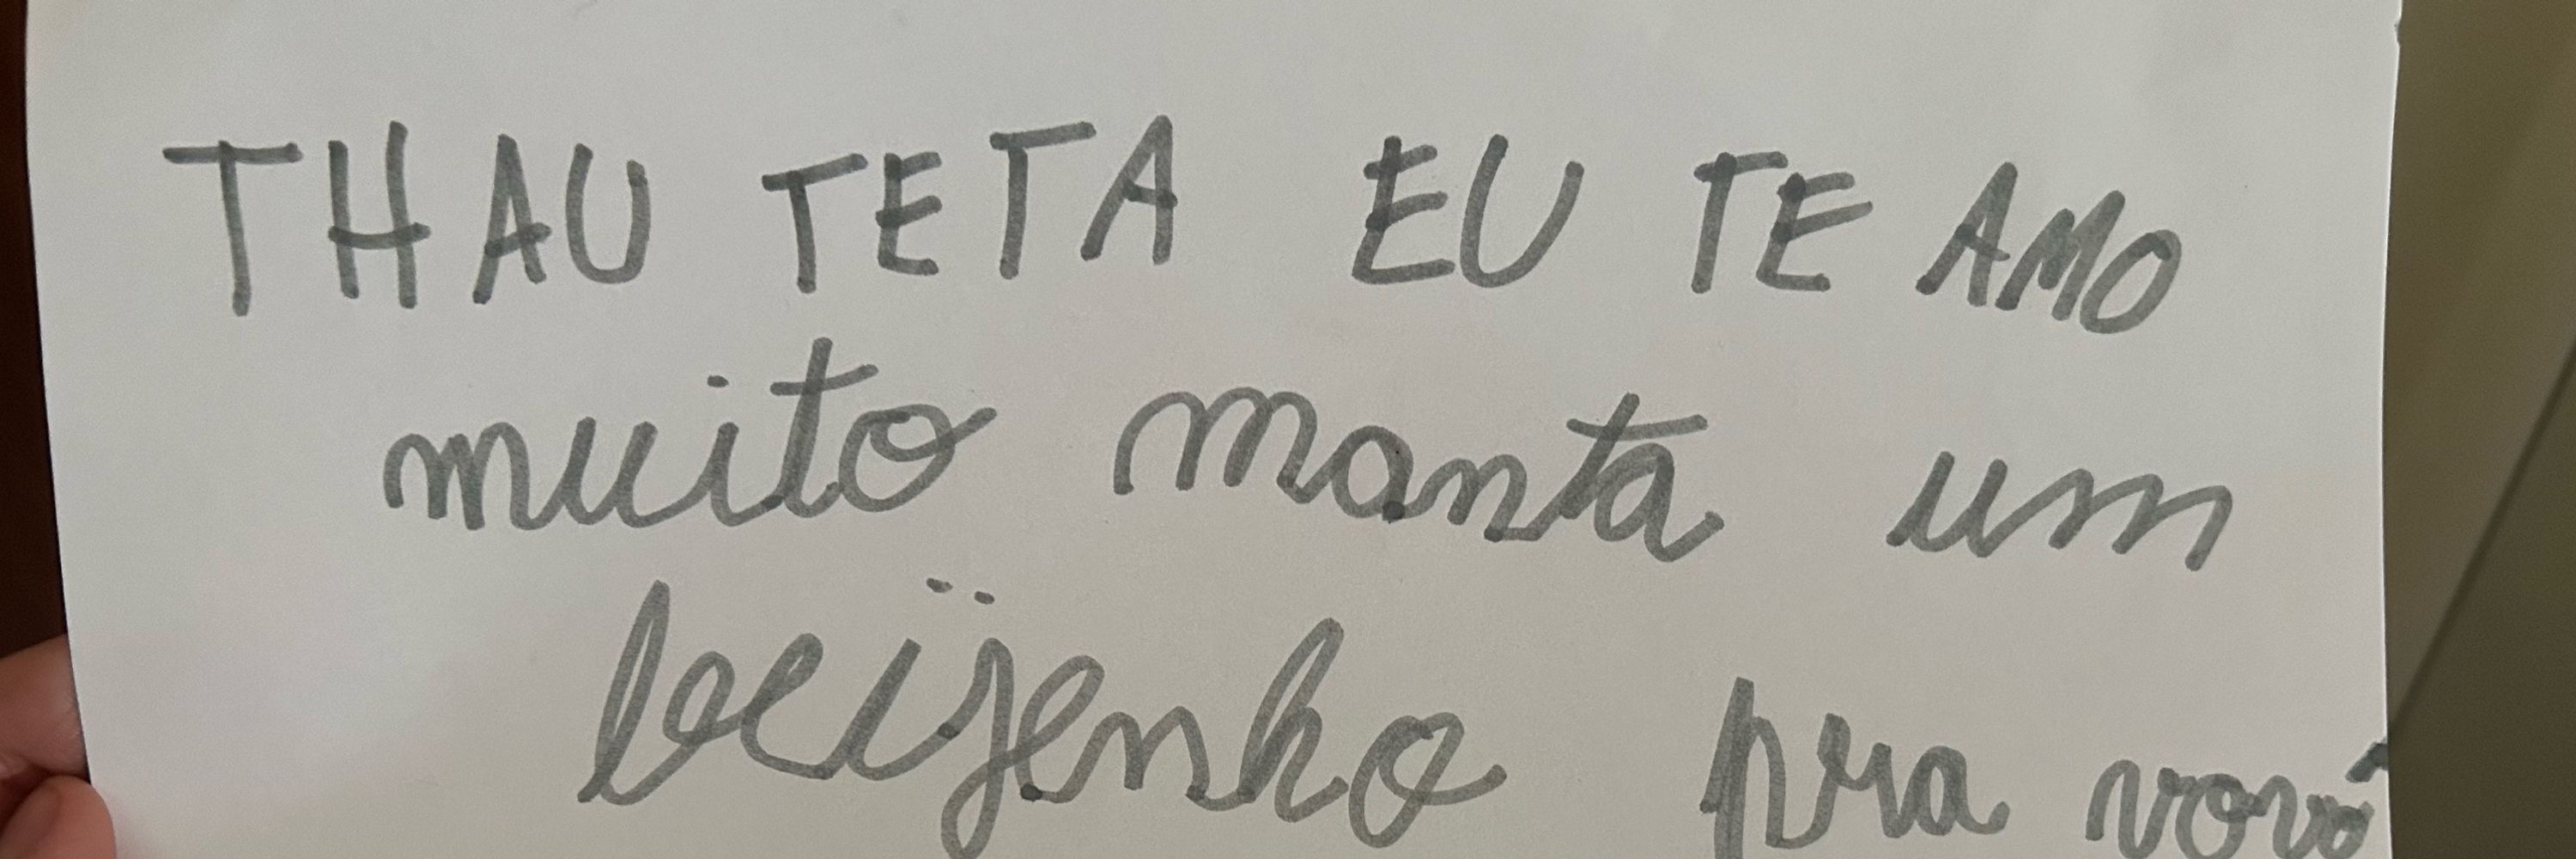 THAU TETA EU TE AMO
muito manta um
beijenho pra vovó